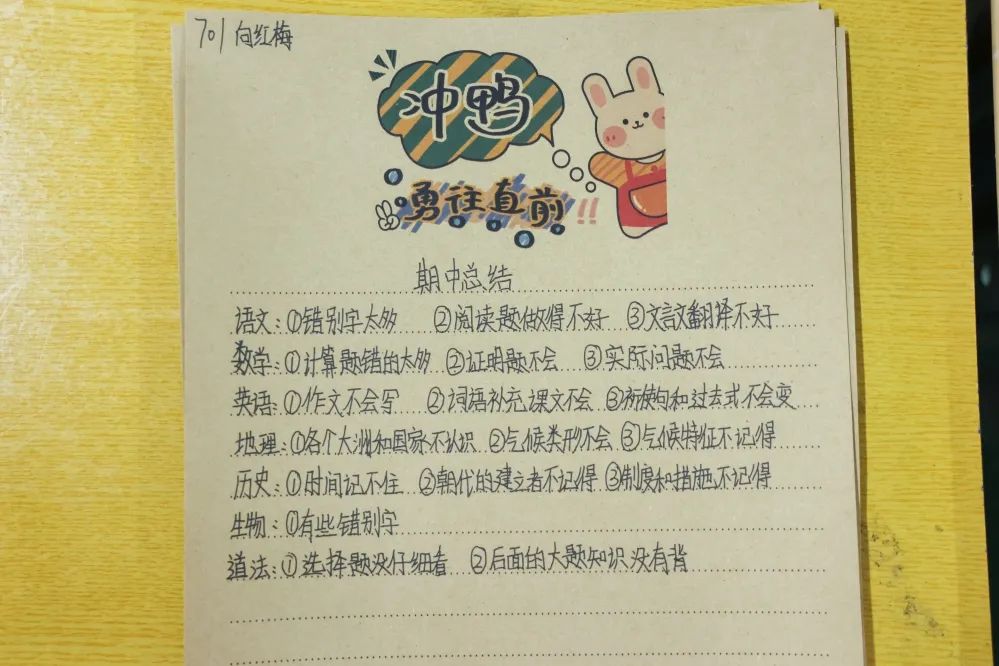 701 向红梅
冲鸭
勇往直前!!
期中总结
语文:①错别字太多 ②阅读题做得不好 ③文言文翻译不好
数学:①计算题错的太多 ②证明题不会 ③实际问题不会
英语:①作文不会写 ②词语补充课文不会 ③祈使句和过去式不会变
地理:①各个大洲和国家不认识 ②气候类形不会 ③气候特征不记得
历史:①时间记不住 ②朝代的建立者不记得 ③制度和措施不记得
生物:①有些错别字
道法:①选择题没仔细看 ②后面的大题知识没有背